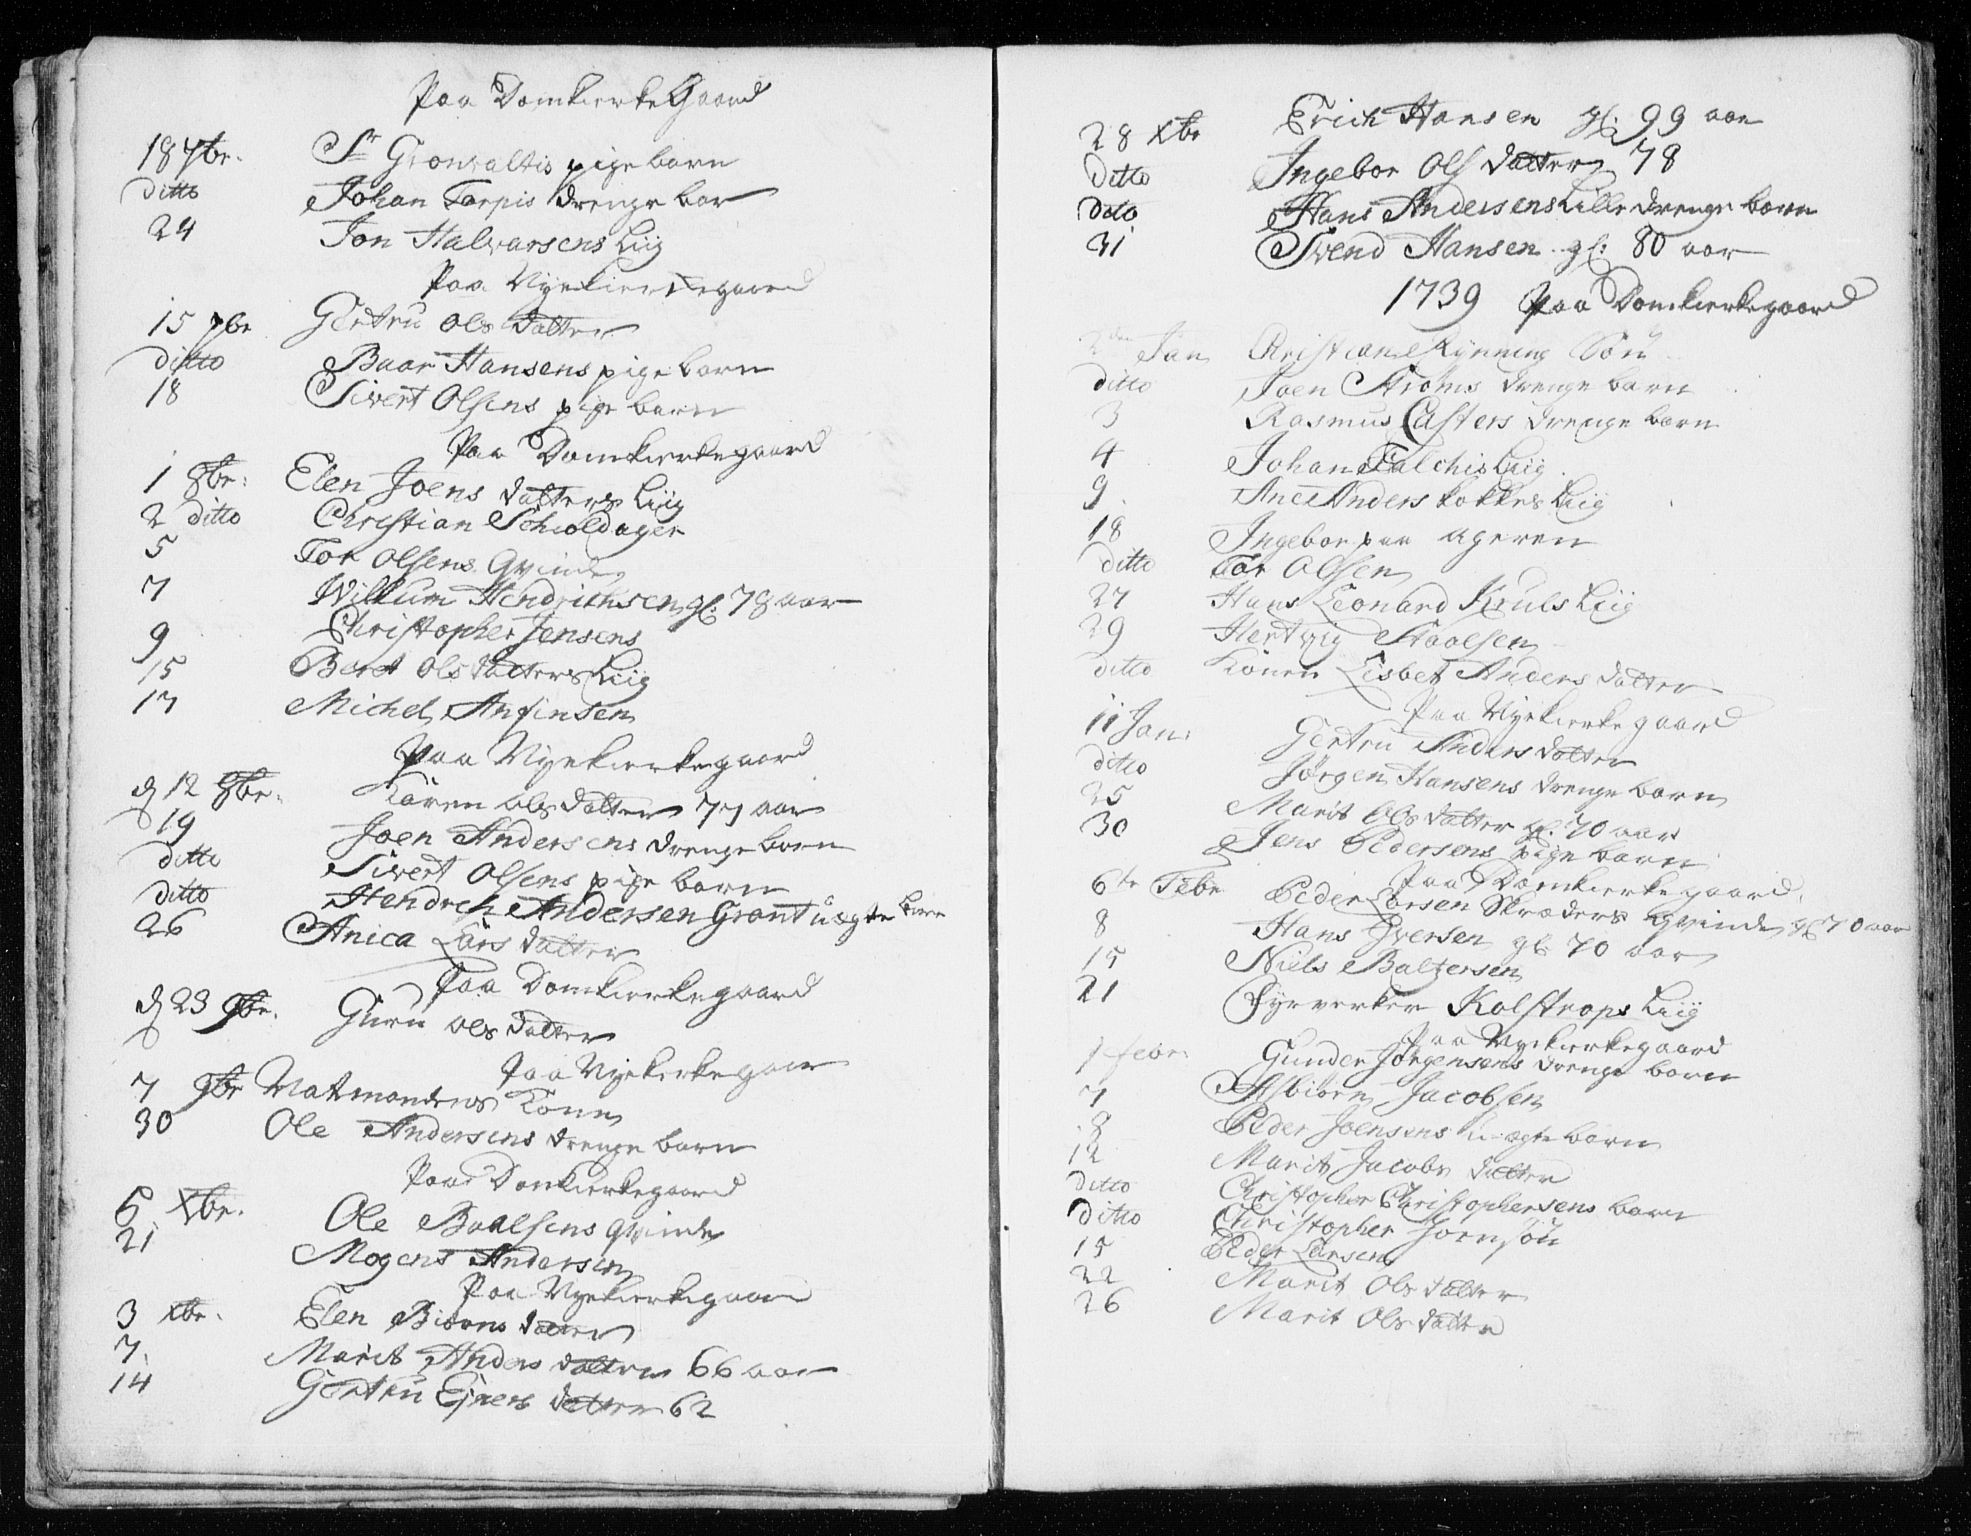 Paa Domkierke Gaard
18 7br. Sr Gronvaltis pige barn
ditto Johan Torpis drenge bar
24 Jon Halvarsens Liig
Paa Nyekierkegaard
15 7br Giertru Ols datter
ditto Baar Hansens pige barn
18 Sivert Olsens pige barn
Paa Domkierkegaard
1 8br: Elen Joens datters Liig
2 ditto Christian Schioldager
5 Tor Olsens Qvinde
7 Willum Hendrichsen gl: 78 aar
9 Christopher Jensens
15 Beret Ols datters Liig
17 Michel Anfinsen
Paa Nyekierkegaard
d 12 8br. Karen Ols datter 77 aar
19 Joen Andersens drenge barn
ditto Sivert Olsens pige barn
ditto Hendrch Andersen Grant uægte barn
26 Anica Lars datter
Paa Domkierkegaard
d 23 9br. Guru Ols datter
Paa Nyekirkegaar
7 9br Natmandens Kone
30 Ole Andersens drenge barn
Paa Domkierkegaard
5 Xbr. Ole Boelsens qvinde
21 Mogens Andersen
Paa Nyekierkegaar
3 xbr. Elen Biørns datter
7. Marit Anders datter 66 aar
14 Gertru Ejners datter 62
28 Xbr Erich Hansen gl. 99 aar
Ditto Ingebor Ols datter 78
dito Hans Andersens Lille drenge barn
31 Svend Hansen gl: 80 aar
1739 Paa Domkierkegaard
2den Jan Christian Rynning Søn
ditto Joen Strøms drenge barn
3 Rasmus Casters drenge barn
4 Johan Falchis Liig
9. Ane Anders kokkes Liig
18 Ingebor paa ageren
ditto Tor Olsen
27 Hans Leonard Kruls Liig
29 Hertvig Staalsen
ditto Konen Lisbet Anders datter
Paa Nyekierkegaard
11 Jan. Gertru Anders datter
ditto Jørgen Hansens drenge barn
25 Marit Ols datter gl. 70 aar
30 Jens Pedersens pige barn
Paa Domkierkegaard.
6te Febr Peder Larsen Skræders qvinde gl 70 aar
8 Hans Iversen gl 70 aar
15 Niels Baltzersen
21 Fyrverker Kolstrops Liig
Paa Nyekierkegaard
1 febr: Gunder Jørgensens drenge barn
7 Asbiørn Jacobsen
8 Peder Joensens u-ægte barn
12 Marit Jacobs datter
ditto Christopher Christophersens barn
ditto Christopher Jørnsøn
15 Peder Larsen
22 Marit Ols datter
26 Marit Ols datte